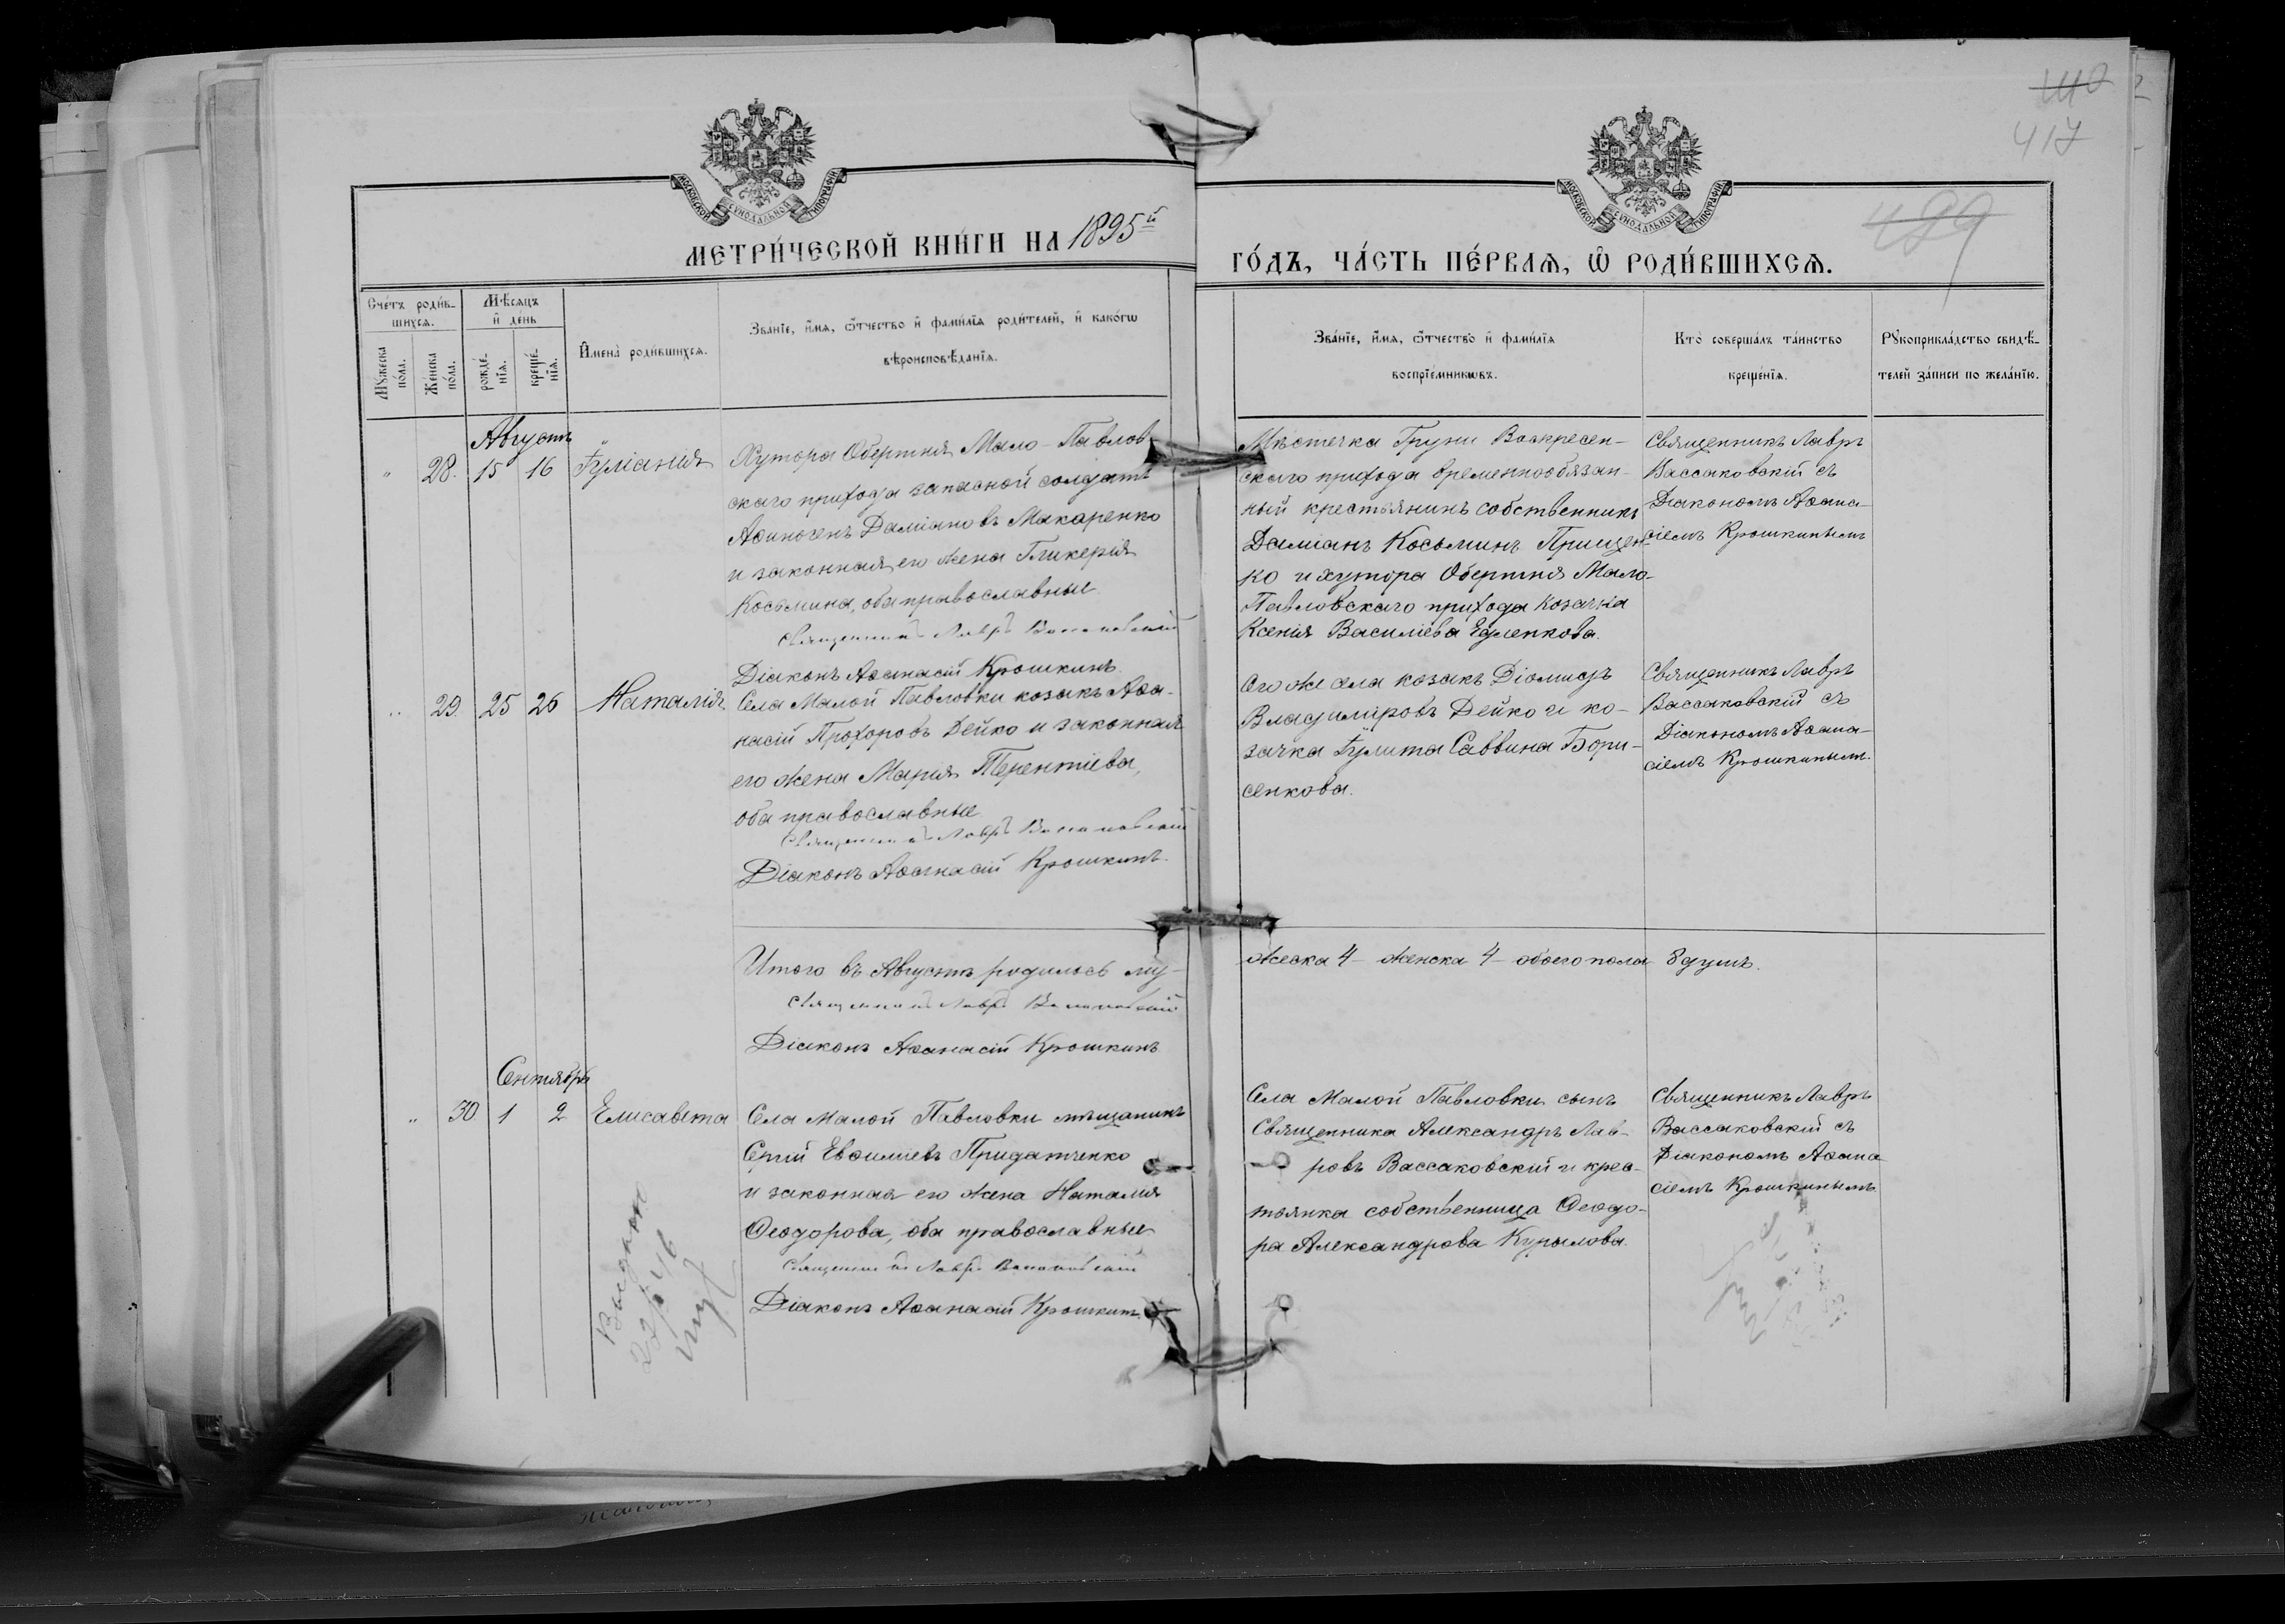 417
МЕТРИ́ЧЕСКОЙ КНИ́ГИ НА 1895й
ГО́ДЪ, ЧА́СТЬ ПЕ́РВАѦ, Ѽ РОДИ́ВШИХСѦ.
МОСКОВСКОЙ СУНОДАЛЬНОЙ ТИПОГРАФІИ
МОСКОВСКОЙ СУНОДАЛЬНОЙ ТИПОГРАФІИ
Сче́тъ роди́в-
шихсѧ.
Мѣ́сѧцъ
и҆ де́нь
Мꙋ́жеска
по́ла.
Же́нска
по́ла.
рожде́-
нїѧ.
креще́-
нїѧ.
И҆мена̀ роди́вшихсѧ.
Зва́нїе, и҆́мѧ, ѻ҆́тчество и҆ фами́лїѧ роди́телей, и҆ како́гѡ
вѣроисповѣ́данїѧ.
Зва́нїе, и҆́мѧ, ѻ҆́тчество и҆ фами́лїѧ
воспрїе́мникѡвъ.
Кто̀ соверша́лъ та́инство
креще́нїѧ.
Рꙋкоприкла́дство свидѣ́-
телей за́писи по жела́нїю.
Августъ
" 28. 15 16 Іуліанія
Хутора Обертня Мало-Павлов-
скаго прихода запасной солдатъ
Аѳиногенъ Даміановъ Макаренко
и законная его жена Гликерія
Косьмина, оба православные
Священникъ Лавръ Вассаковскій
Діаконъ Аѳанасій Крошкинъ.
Мѣстечка Груни Воскресен-
скаго прихода временнообязан-
ный крестьянинъ собственникъ
Даміанъ Косьминъ Прищен-
ко и хутора Обертня Мало-
Павловскаго прихода козачка
Ксенія Василіева
Священникъ Лавръ
Вассаковскій съ
Діакономъ Аѳана-
сіемъ Крошкинымъ
" 29. 25 26 Наталія
Села Малой Павловки козакъ Аѳа-
насій Прохоровъ Дейко и законная
его жена Марія Терентіева,
оба православные.
Священникъ Лавръ Вассаковскій
Діаконъ Аѳанасій Крошкинъ.
Его же села козакъ Діомидъ
Владиміровъ Дейко и ко-
зачка Іулита Саввина Бори-
сенкова.
Священникъ Лавръ
Вассаковскій съ
Діакономъ Аѳана-
сіемъ Крошкинымъ.
Итого въ Августѣ родилось му-
жеска 4 – женска 4 – обоего пола 8 душъ.
Священникъ Лавръ Вассаковскій
Діаконъ Аѳанасій Крошкинъ
Сентябрь
" 30 1 2 Елисавета
Села Малой Павловки мѣщанинъ
Сергій Евѳиміевъ Придатченко
и законная его жена Наталія
Ѳеодорова, оба православные
Священникъ Лавръ Вассаковскій
Діаконъ Аѳанасій Крошкинъ
Села Малой Павловки сынъ
Священника Александръ Лав-
ровъ Вассаковскій и крес-
тьянка собственница Ѳеодо-
ра Александрова Курылова.
Священникъ Лавръ
Вассаковскій съ
Діакономъ Аѳана-
сіемъ Крошкинымъ